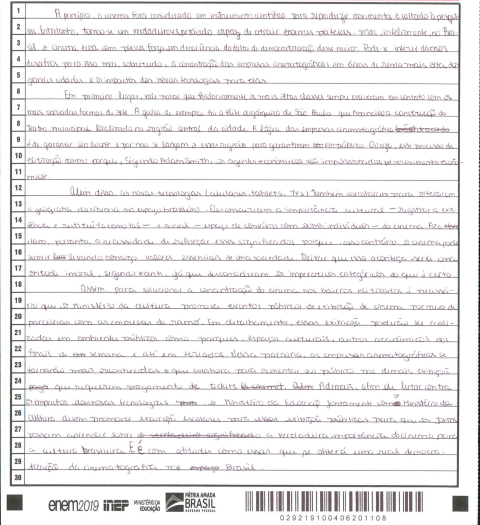 A princípio, o cinema fora considerado um instrumento científico para reproduzir movimento e voltado à pesqui
sa. Entretanto, tornou-se um verdadeiro espetáculo capaz de atrair enormes plateias, mas, infelizmente, no Bra
sil o cinema vive com pouca força, em decorrência da falta de democratização desse
desafios para isso mas, sobretudo, a concentração das empresas cinematográficas em áreas de renda mais alta das
grandes cidades e os impactos das novas tecnologias para elas.
Em primeiro lugar, vale notar que historicamente as mais altas classes sempre estiveram em contato com as
mais variadas formas de arte. A guisa de exemplo foi a elite oligárquica de São Paulo que financiou a construção do
teatro municipal localizado na região central da cidade. A lógica das empresas cinematográficas
é de garantir seu lucro e por isso se lançam a essas regiões para garantirem um público. Ou seja, este processo de
elitização ocorre porque, segundo Adam Smith, os agentes econômicos são impulsionados pelo crescimento econô
mico.
Além disso, as novas tecnologias (celulares, tablets, TVs) também corroboram para alterarem
a geografia do cinema no espaço brasileiro. Desconstroem a importância cultural - registrar a exis
tência e restituí-la como tal - e social - espaço de convívio com outros indivíduos - do cinema. Fica
claro, portanto, a necessidade de reforçar esses significados porque, caso contrário, o cinema pode
sumir levando consigo valores essenciais de uma sociedade. Deixar que isso aconteça seria uma
atitude imoral, segundo Kant, já que desconsideram os imperativos categóricos do que é certo.
Assim, para solucionar a concentração do cinema nos bairros elitizados é necessá
rio que o Ministério da Cultura promova eventos públicos de exibição de cinema por meio de
parcerias com as empresas do ramo. Em detalhamento, essas exibições poderão ser reali
zadas em ambientes públicos como parques, espaços culturais, centros acadêmicos aos
finais de semana e até em feriados. Nessa parceria, as empresas cinematográficas se
tornarão mais reconhecidas o que colabora para aumentar seu público nas demais exibições
que requerem pagamento de tickets. Ademais, afim de lutar contra
os impactos das novas tecnologias o Ministério da Educação juntamente com o Ministério da
Cultura devem promover excursões escolares para essas exibições públicas para que os jovens
possam aprender sobre a verdadeira importância do cinema para
a cultura brasileira. É com atitudes como essas que se obterá uma real democra
tização do cinematográfico no Brasil.
enem2019 inep MINISTÉRIO DA EDUCAÇÃO PÁTRIA AMADA BRASIL GOVERNO FEDERAL
029219100406201108